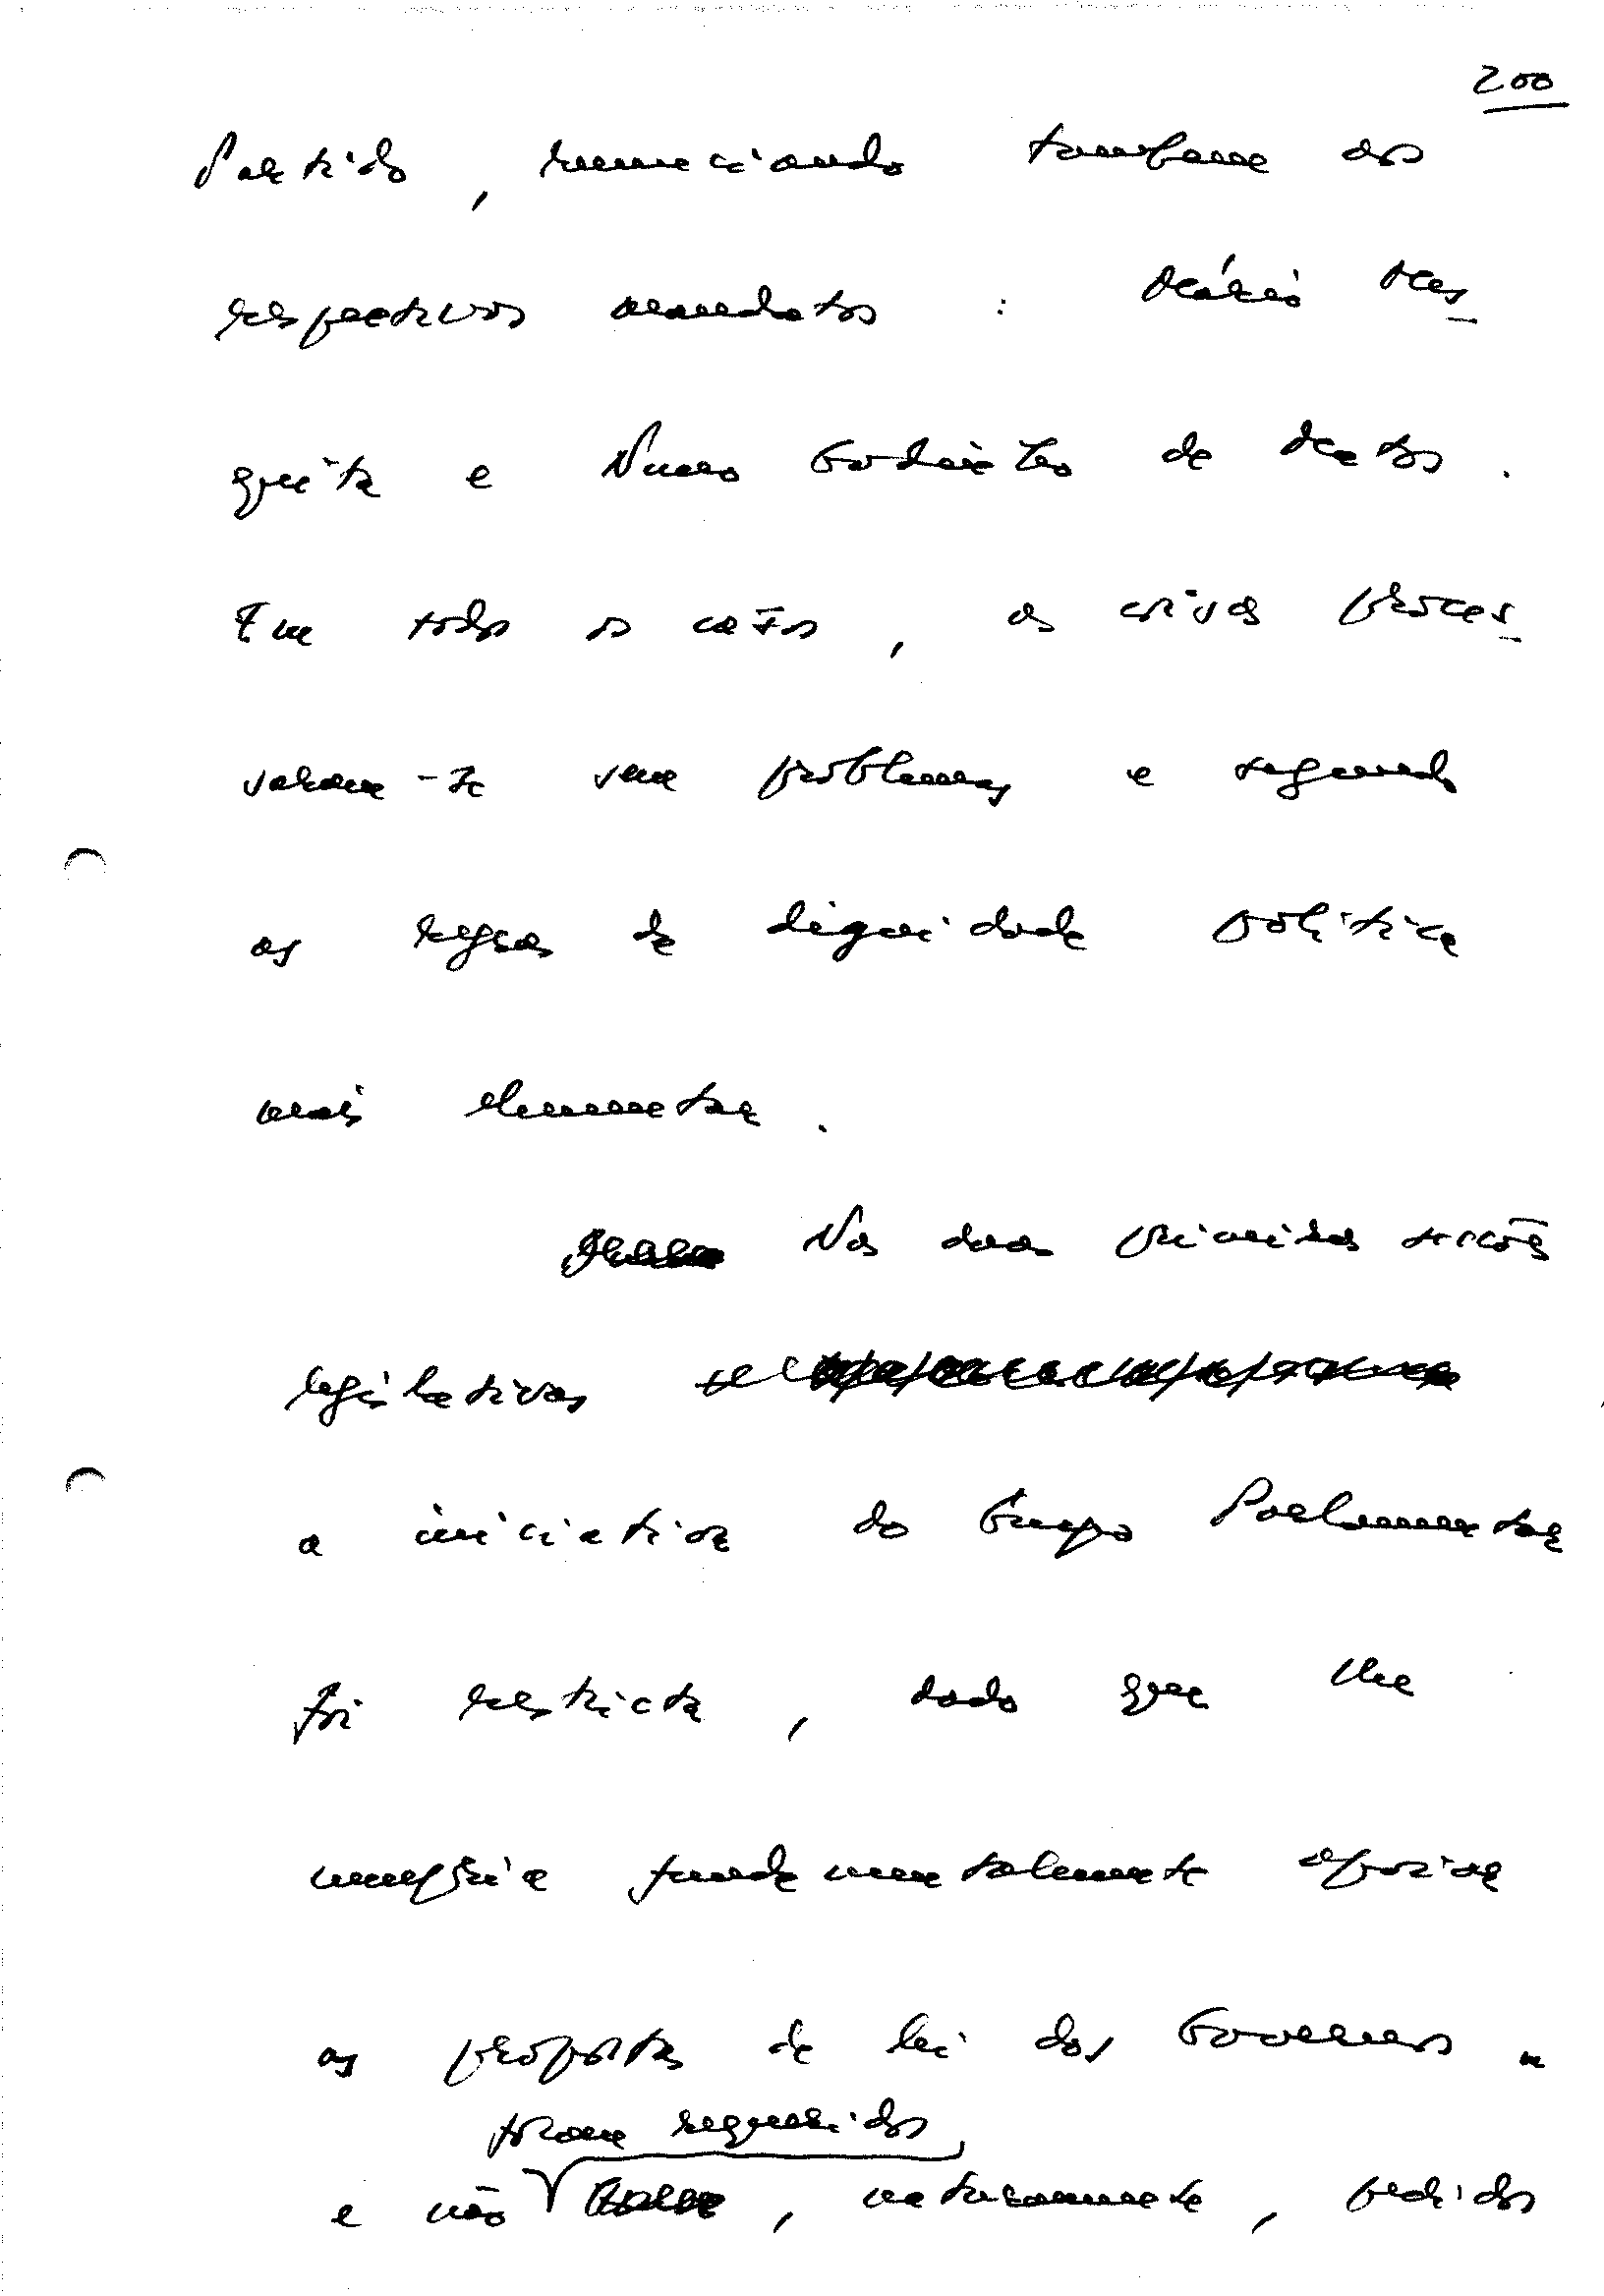 200
Partido, renunciando também aos
respectivos mandatos: Mário Mes-
quita e Nuno Godinho de Matos.
Em todos os casos, as coisas proces-
saram-se sem problemas e segundo
as regras de dignidade política
mais elementar.
Nas duas primeiras sessões
legislativas
a iniciativa do Grupo Parlamentar
foi restricta, dado que lhe
cumpria fundamentalmente apoiar
as propostas de lei dos Governos
foram requeridos
e não, naturalmente, pedidos